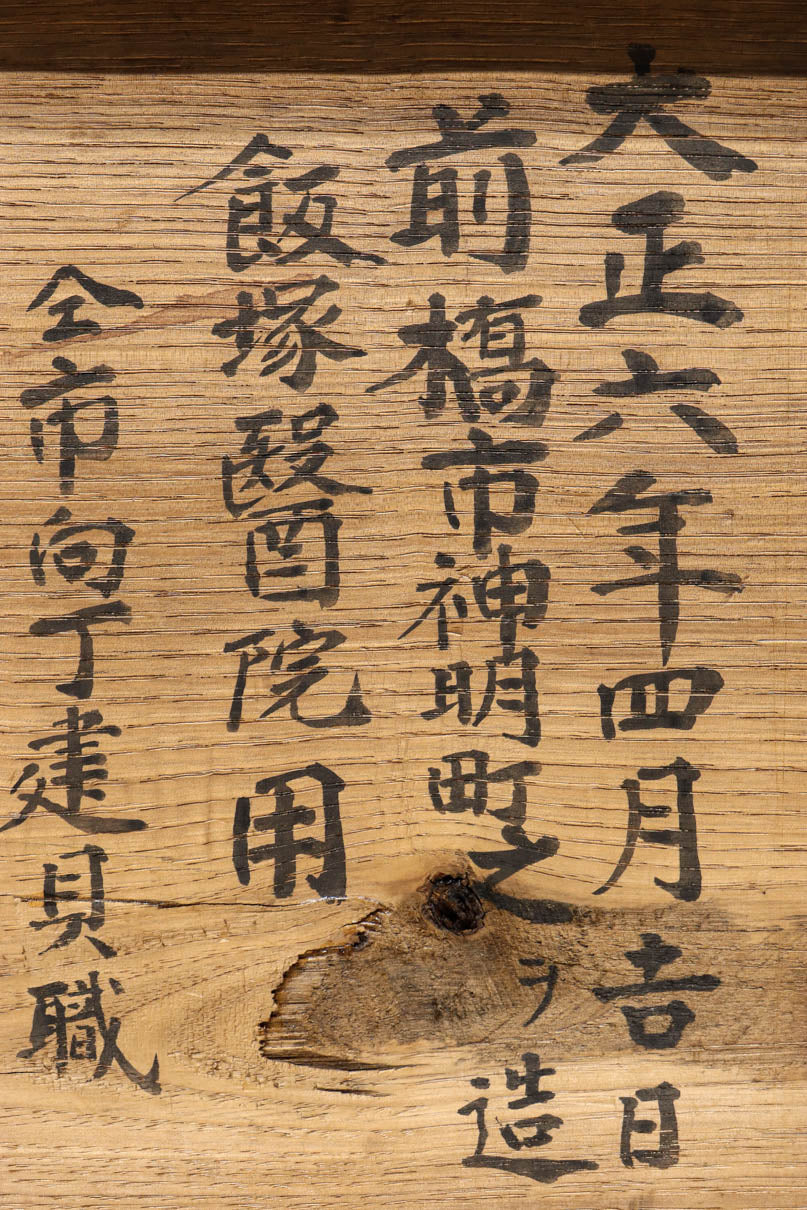 大正六年四月吉日
前橋市神明町之ヲ造
飯塚醫院用
仝市向丁建具職